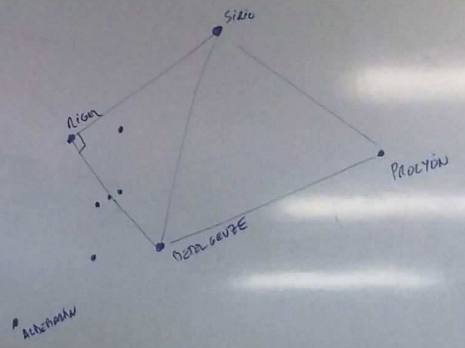 SIRIO
RIGEL
PROCYÓN
BETELGEUZE
ALDEBARÁN